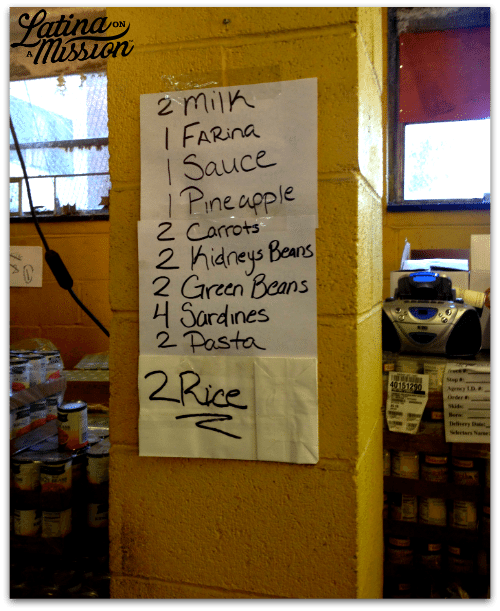 Latina ON
A Mission
2 Milk
1 FARina
1 Sauce
1 Pineapple
2 Carrots
2 Kidneys Beans
2 Green Beans
4 Sardines
2 Pasta
2 Rice
40151290
Stop #:
Agency I.D. #:
Order #:
Date:
Delivery Date:
Selectors Name: